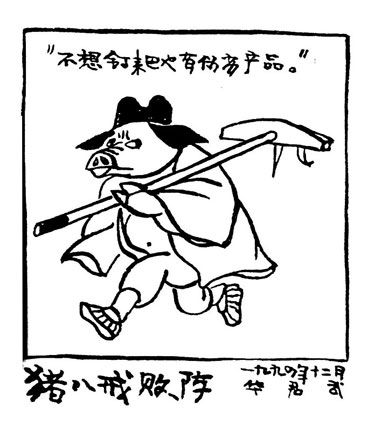 "不想钉耙也有伪劣产品。"
猪八戒败阵
一九九四年十二月
华君武